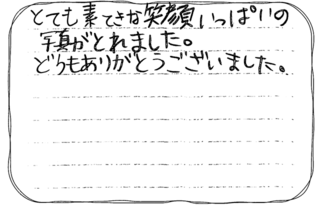 とても素てきな笑顔いっぱいの
写真がとれました。
どうもありがとうございました。